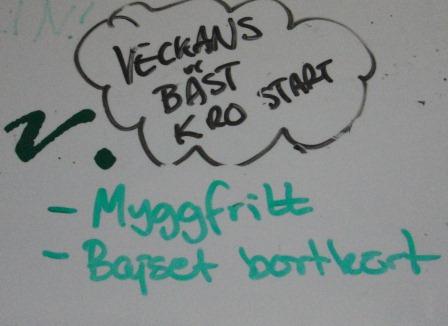 VECKANS
BÄST
KRO START
2.
- Myggfritt
- Bajset bortkört